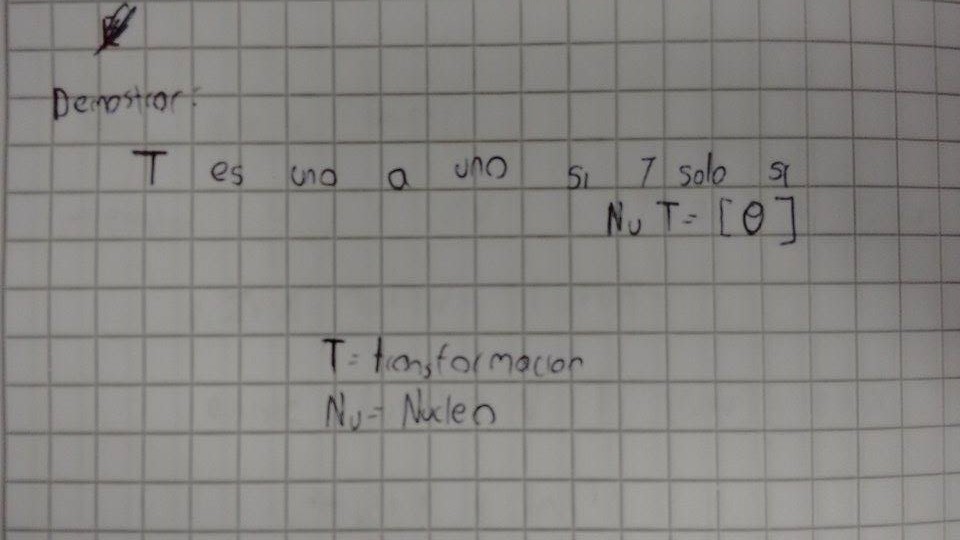 Demostrar:
T es uno a uno si y solo si
Nu T= [θ]
T= transformacion
Nu= Nucleo